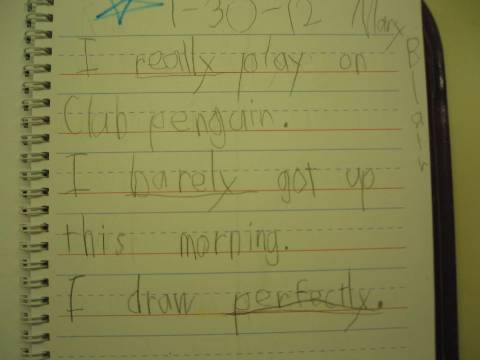 1-30-12 Mary
Blair
I really play on
Club penguin.
I barely got up
this morning.
I draw perfectly.